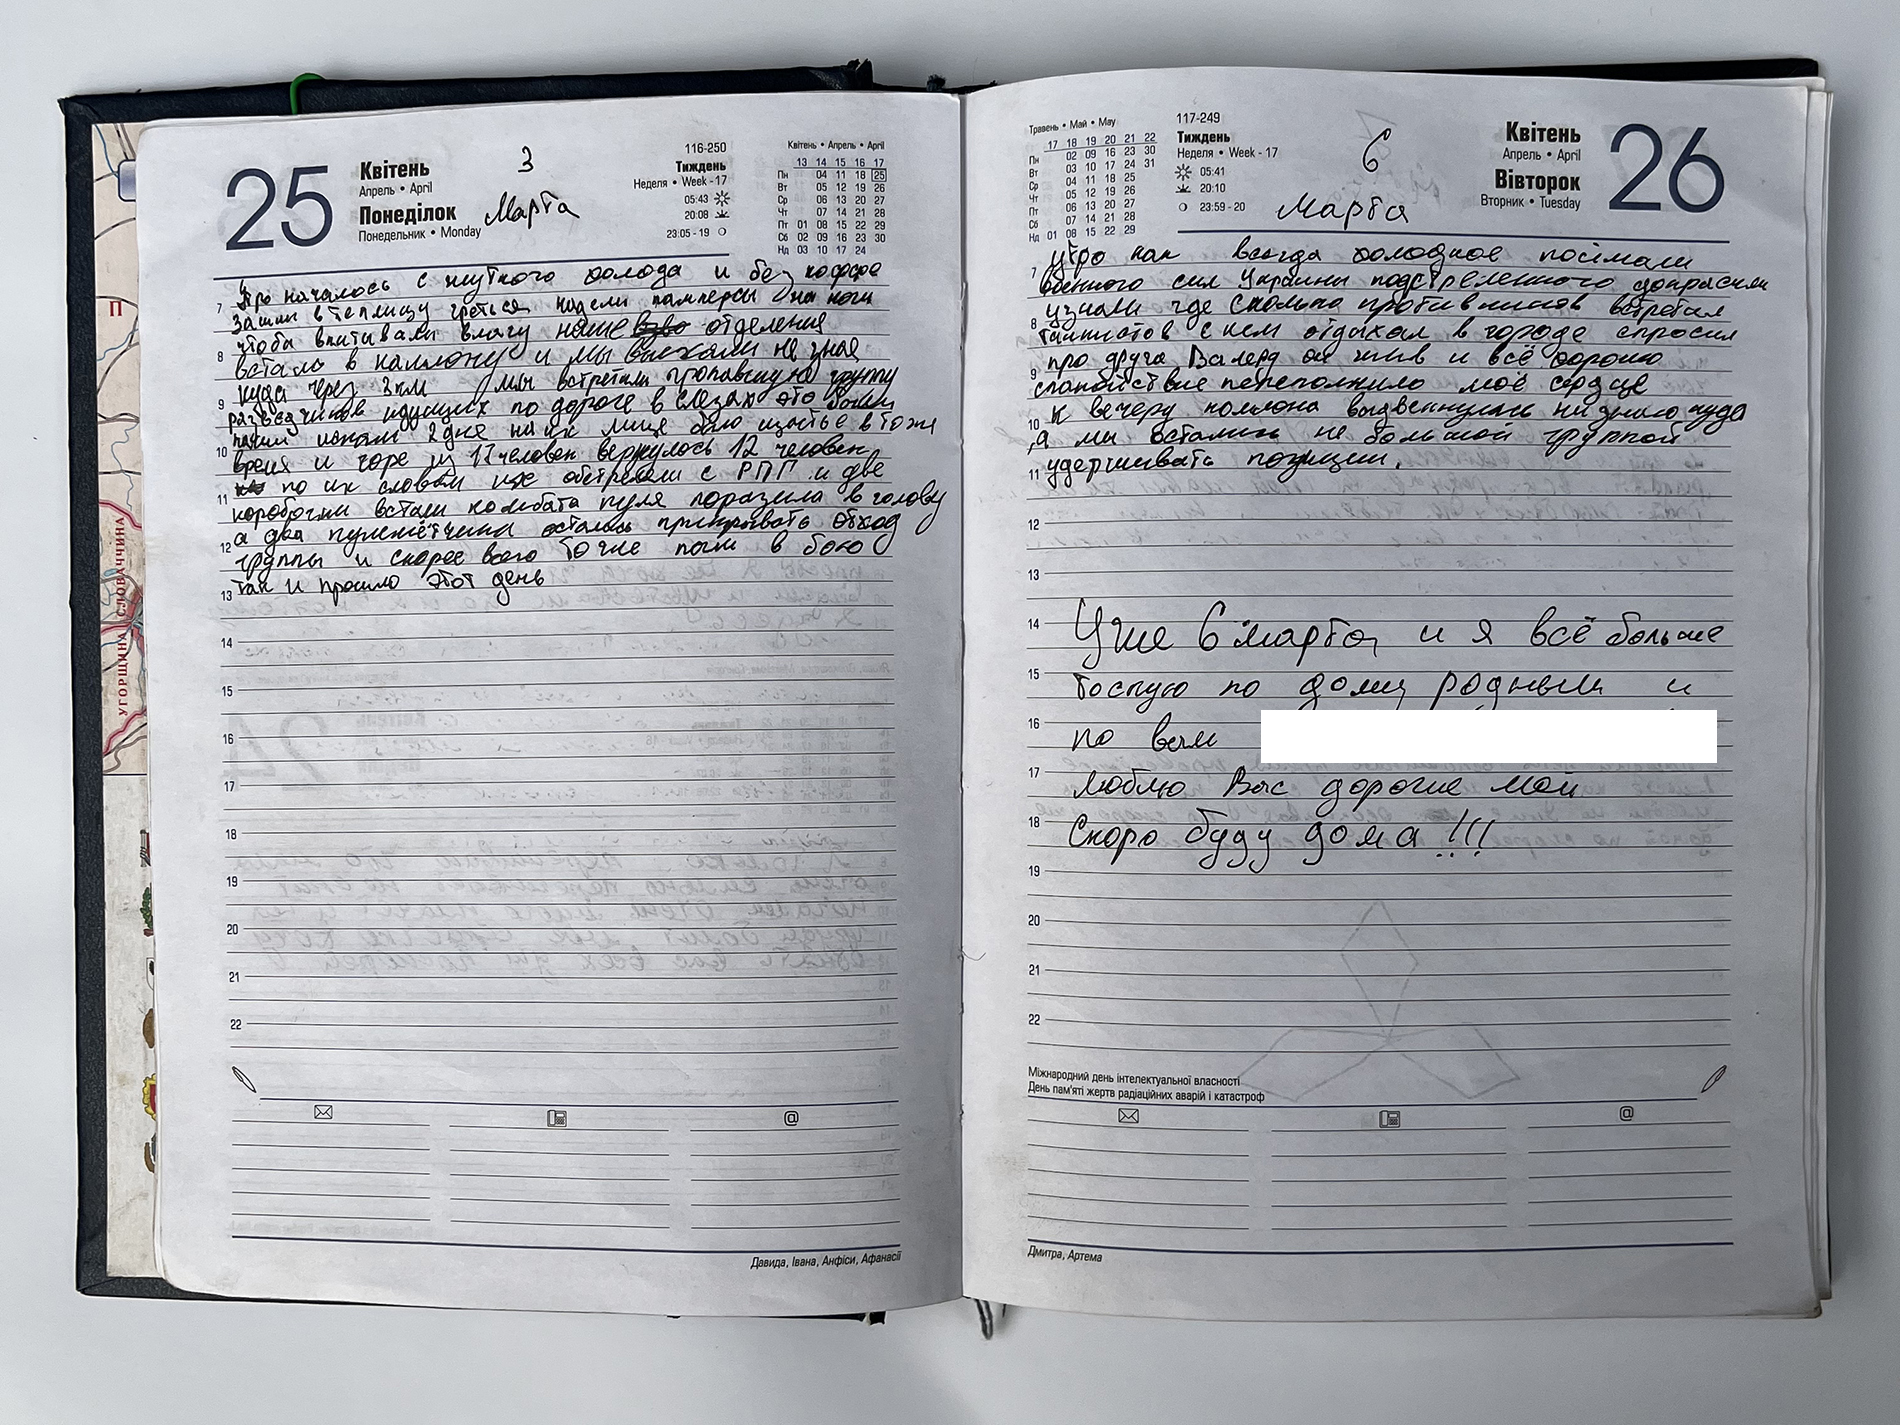 25
Квітень
Апрель • April
Понеділок
Понедельник • Monday
3
Марта
116-250
Тиждень
Неделя • Week - 17
05:43
20:08
23:05 - 19
Квітень • Апрель • April
13 14 15 16 17
Пн 04 11 18 25
Вт 05 12 19 26
Ср 06 13 20 27
Чт 07 14 21 28
Пт 01 08 15 22 29
Сб 02 09 16 23 30
Нд 03 10 17 24
Утро началось с жуткого холода и без кофе
7 Зашли в теплицу греться надели памперсы на ноги
чтоба впитывали влагу наше отделения
8 встало в каллону и мы выехали не зная
куда через 3км мы встретили пропавшую группу
9 разведчиков идущих по дороге в слезах это были
пацаны искали 2 дня на их лице было щастье в тоже
10 время и горе из 17 человек вернулось 12 человек
по их словам их обстреляли с РПГ и две
11 коробочки встали комбата пуля поразила в голову
а два пулемётчика остались прикрывать отход
12 группы и скорее всего тоже погли в бою
13 так и прошло этот день
14
15
16
17
18
19
20
21
22
Давида, Івана, Анфіси, Афанасії
УГОРЩИНА СЛОВАЧЧИНА
П
Травень • Май • May
17 18 19 20 21 22
Пн 02 09 16 23 30
Вт 03 10 17 24 31
Ср 04 11 18 25
Чт 05 12 19 26
Пт 06 13 20 27
Сб 07 14 21 28
Нд 01 08 15 22 29
117-249
Тиждень
Неделя • Week - 17
05:41
20:10
23:59 - 20
6
Марта
Квітень
Апрель • April
Вівторок
Вторник • Tuesday
26
7 утро как всегда холодное поймали
военного сил Украины подстреленного допрасили
8 узнали где сколько противников встретил
танкистов с кем отдыхал в городе спросил
9 про друга Валерд он жив и всё хорошо
спакойствие переполнило моё сердце
10 к вечеру коллона выдвенулась ни знаю куда
а мы остались не большой группой
11 удерживать позиции.
12
13
14 Уже 6 марта, и я всё больше
15 тоскую по дому родным и
16 по всем
17 люблю Вас дорогие мои
18 Скоро буду дома !!!
19
20
21
22
Міжнародний день інтелектуальної власності
День пам'яті жертв радіаційних аварій і катастроф
Дмитра, Артема